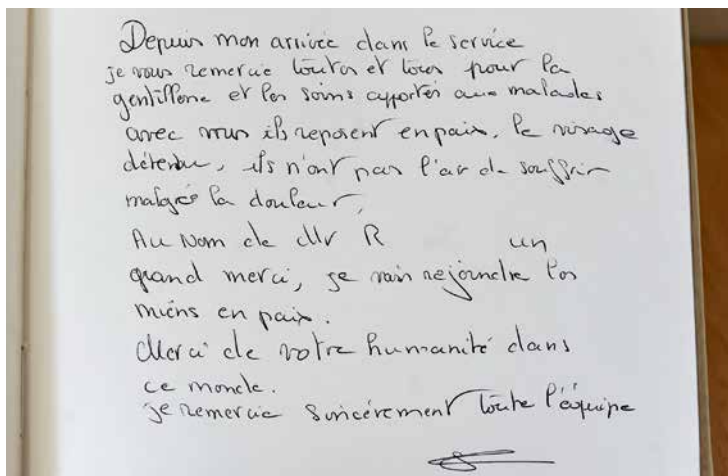 Depuis mon arrivée dans le service
je vous remercie toutes et tous pour la
gentillesse et les soins apportés aux malades
avec vous ils reposent en paix, le visage
détendu, ils n'ont pas l'air de souffrir
malgré la douleur,
Au Nom de Mr R un
grand merci, je vais rejoindre les
miens en paix.
Merci de votre humanité dans
ce monde.
je remercie sincèrement toute l'équipe